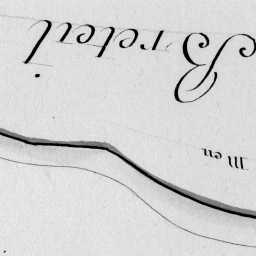 Breteil
Men